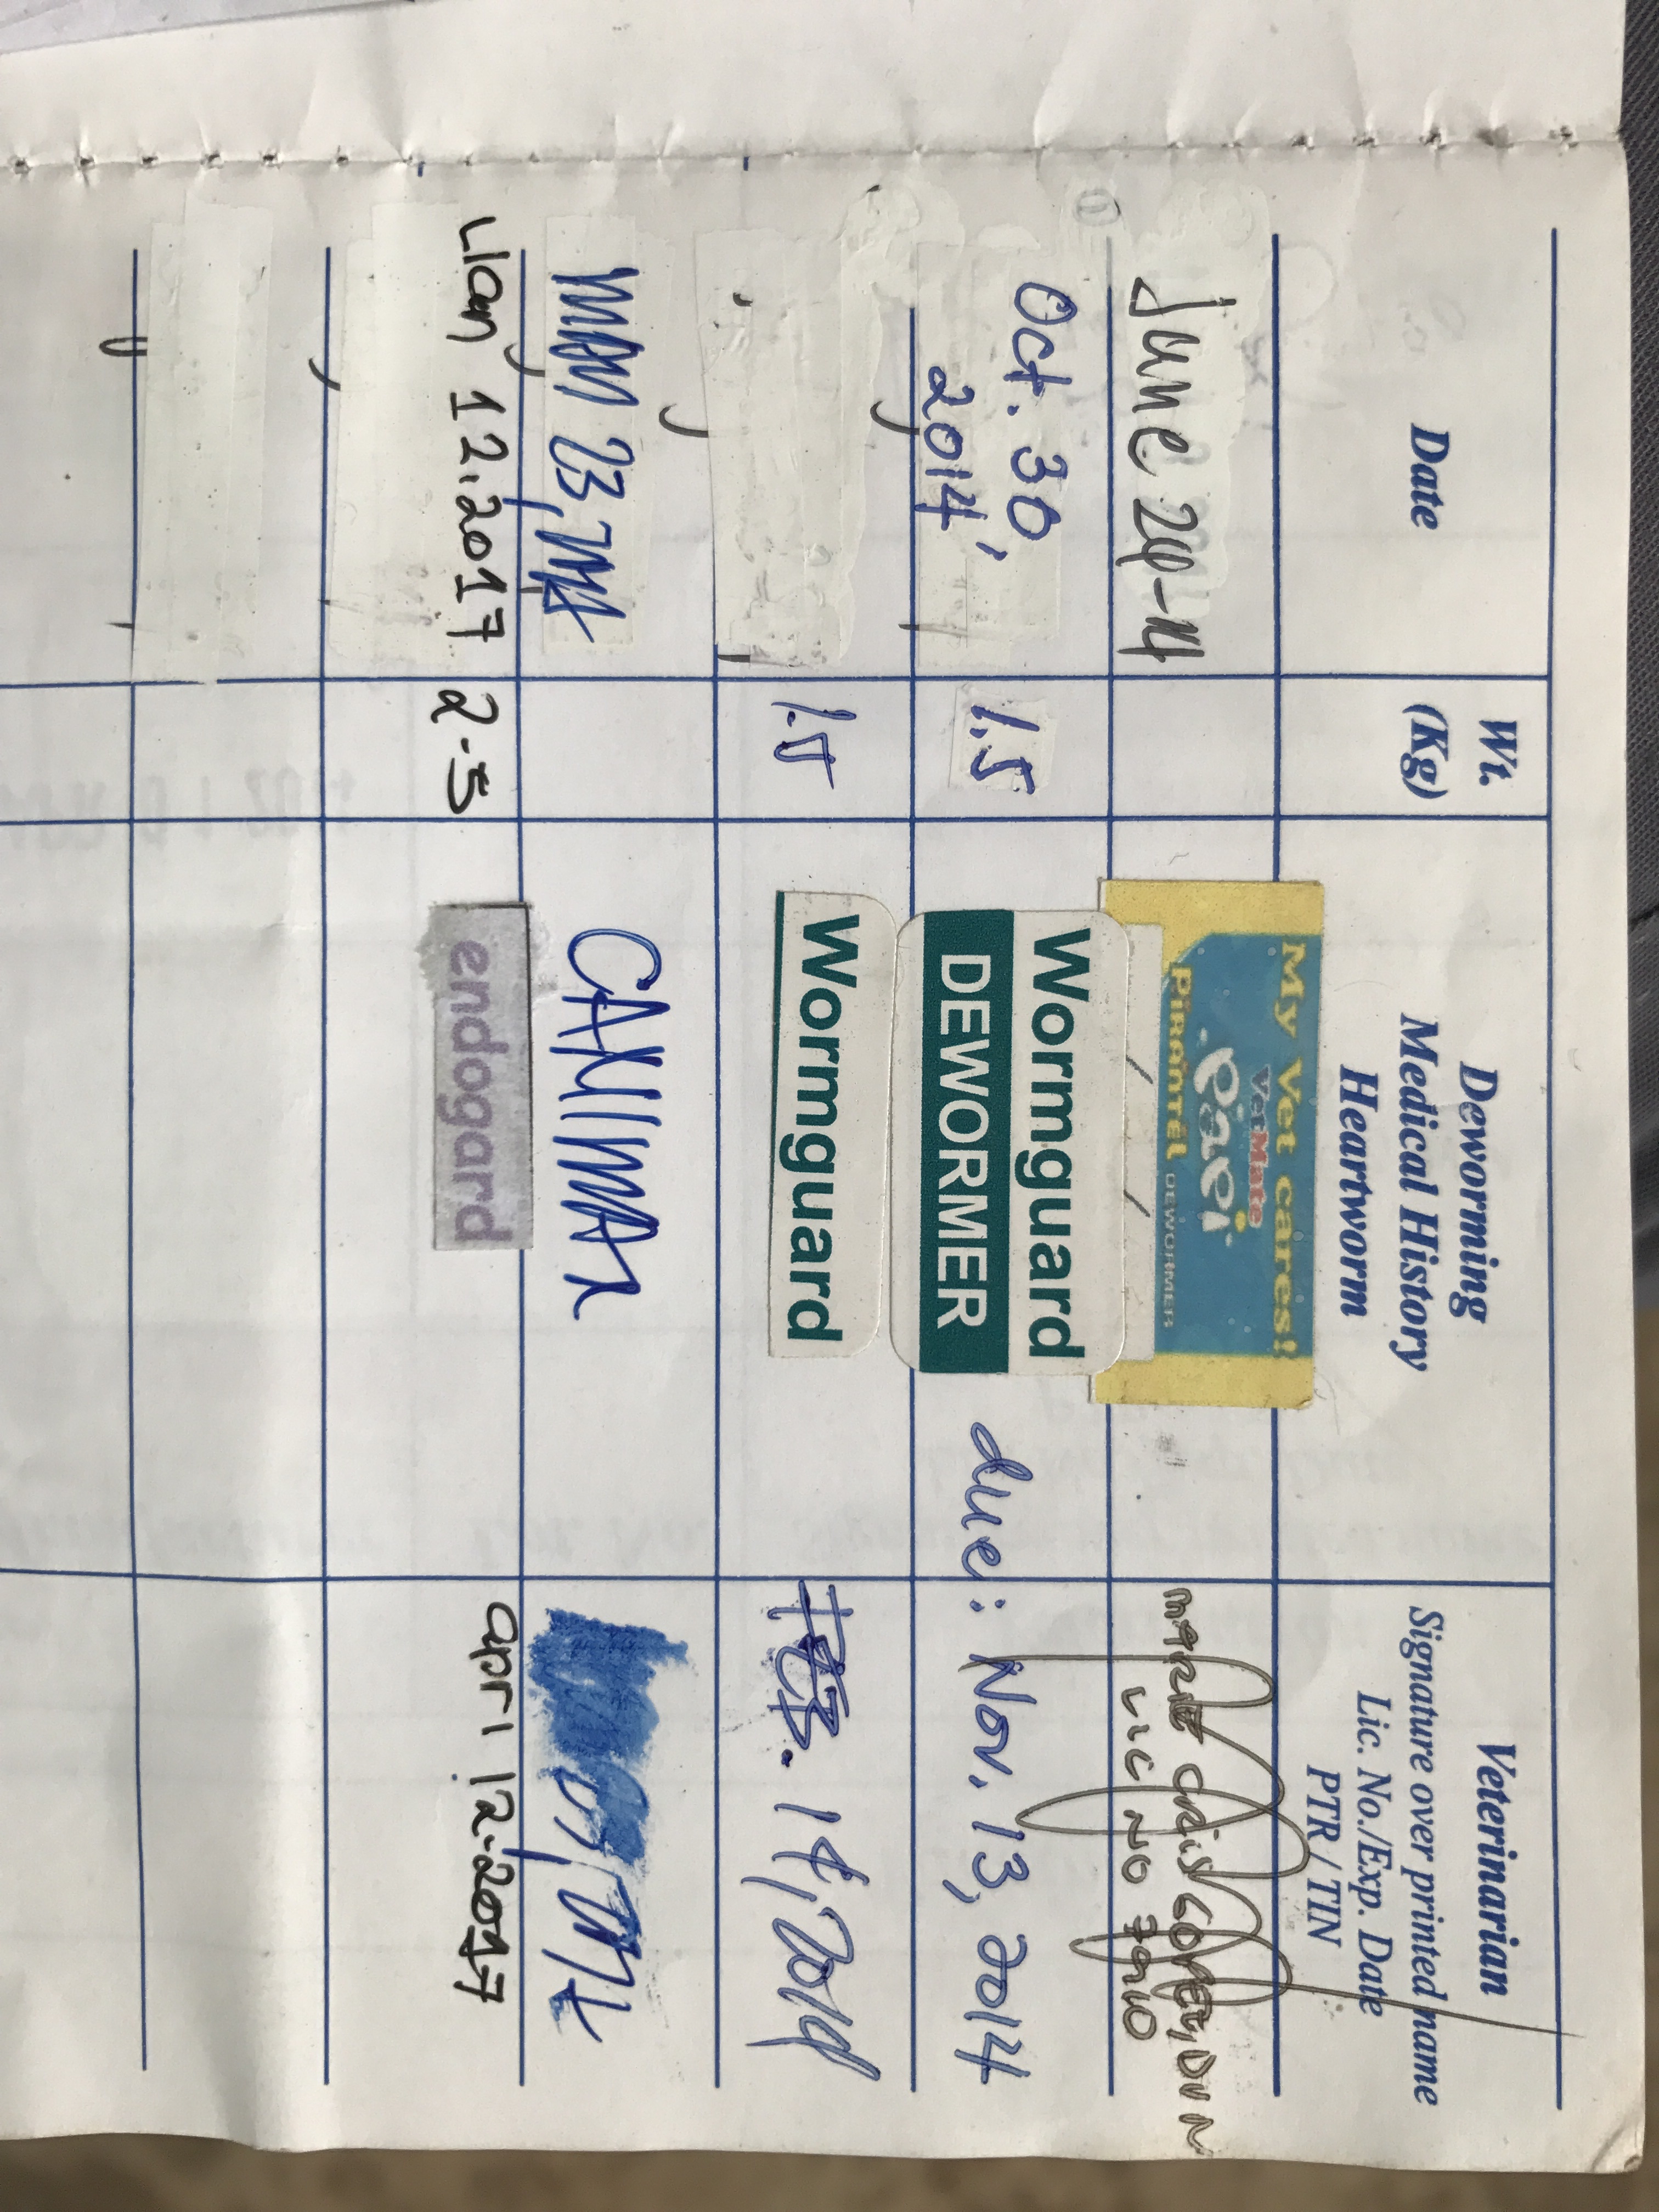 Date
Wt.
(Kg)
Deworming
Medical History
Heartworm
Veterinarian
Signature over printed name
Lic. No./Exp. Date
PTR / TIN
June 24-14
My Vet cares!
VetMate
PiRANTEL DEWORMER
LIC NO
Oct. 30,
2014
1.5
Wormguard
DEWORMER
due: Nov. 13, 2014
1.5
Wormguard
14, 2014
23,
Jan 12.2017
2.5
endogard
apri 12.2017